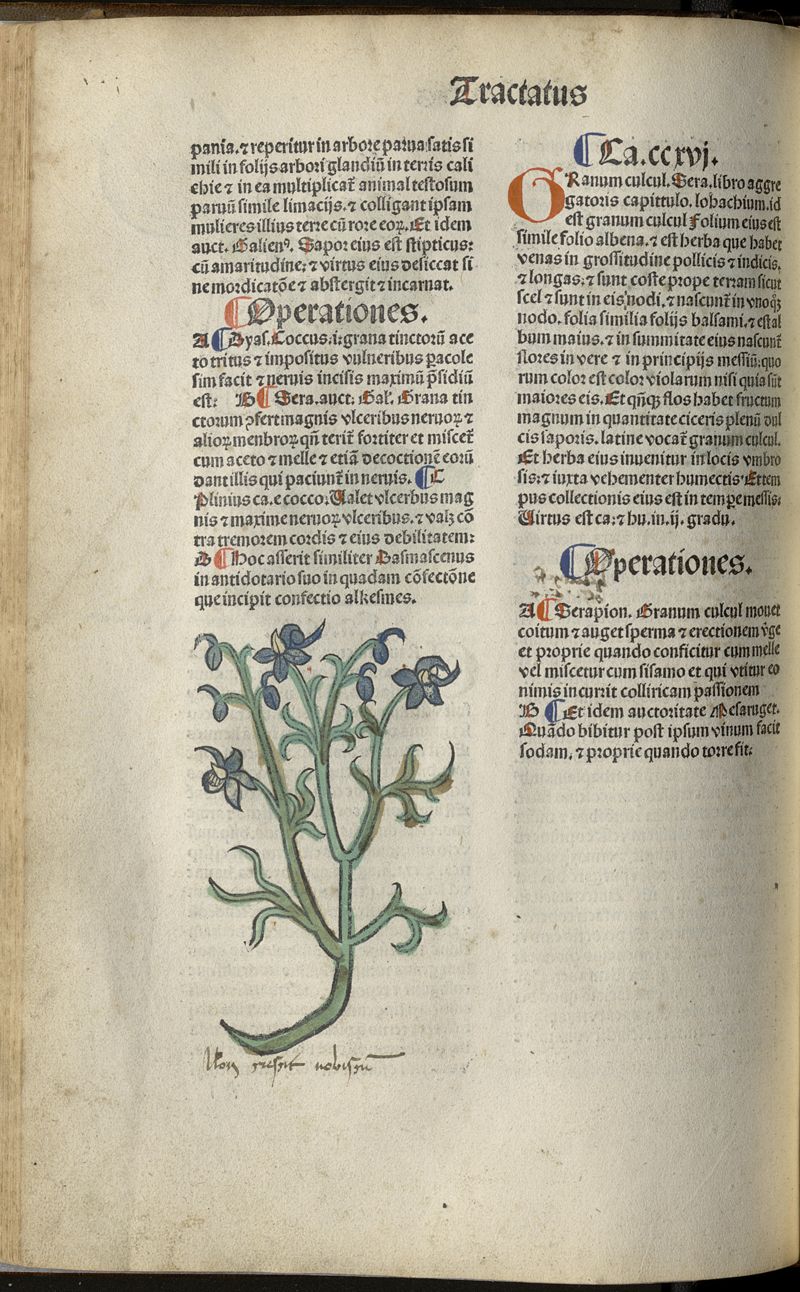 Tractatus
pania.⁊ reperitur in arbore parua satis si
mili in folijs arbori glandiũ in terris cali
chie ⁊ in ea multiplicat̃ animal testosum
paruũ simile limacijs.⁊ colligant ipsam
mulieres illius terre cũ rore eoꝝ. Et idem
auct. Galienꝰ. Sapor eius est stipticus:
cũ amaritudine: ⁊ virtus eius desiccat si
ne mordicatõe ⁊ abstergit ⁊ incarnat.
Operationes.
A Dyas. Coccus .i. grana tinctorũ ace
to tritus ⁊ impositus vulneribus ꝑacole
sim facit ⁊ neruis incisis maximũ p̃sidiũ
est: B Sera. auct. Gal. Grana tin
ctorum ꝓfert magnis vlceribus neruoꝝ ⁊
alioꝝ menbroꝝ qñ terit̃ fortiter et miscet̃
cum aceto ⁊ melle ⁊ etiã decoctionẽ eorũ
dant illis qui paciunt̃ in neruis. C
Plinius ca. e cocco: Ualet vlceribus mag
nis ⁊ maxime neruoꝝ vlceribus.⁊ valꝫ cõ
tra tremorem cordis ⁊ eius debilitatem:
D Hoc asserit similiter Damascenus
in antidotario suo in quadam cõfectõne
que incipit confectio alkermes.
Non crescit nobiscũ
Ca.ccxvj.
GRanum culcul. Sera. libro aggre
gatoris capittulo. lobachium. id
est granum culcul Folium eius est
simile folio albena.⁊ est herba que habet
venas in grossitudine pollicis ⁊ indicis.
⁊ longas: ⁊ sunt coste prope terram sicut
scel ⁊ sunt in eis nodi. ⁊ nascunt̃ in vnoqꝫ
nodo. folia similia folijs balsami.⁊ est al
bum maius.⁊ in summitate eius nascunt̃
flores in vere ⁊ in principijs messiũ: quo
rum color est color violarum nisi quia sũt
maiores eis. Et qñqꝫ flos habet fructum
magnum in quantitate ciceris plenũ dul
cis saporis. latine vocat̃ granum culcul.
Et herba eius inuenitur in locis vmbro
sis: ⁊ iuxta vehementer humectis. Et tem
pus collectionis eius est in tempe messis:
Uirtus est ca: ⁊ hu. in .ij. gradu.
Operationes.
A Serapion. Granum culcul mouet
coitum ⁊ auget sperma ⁊ erectionem vge
et proprie quando conficitur cum melle
vel miscetur cum sisamo et qui vtitur eo
nimis incurrit colliricam passionem
B Et idem auctoritate Mesarugei.
Quãdo bibitur post ipsum vinum facit
sodam. ⁊ proprie quando torrefit: